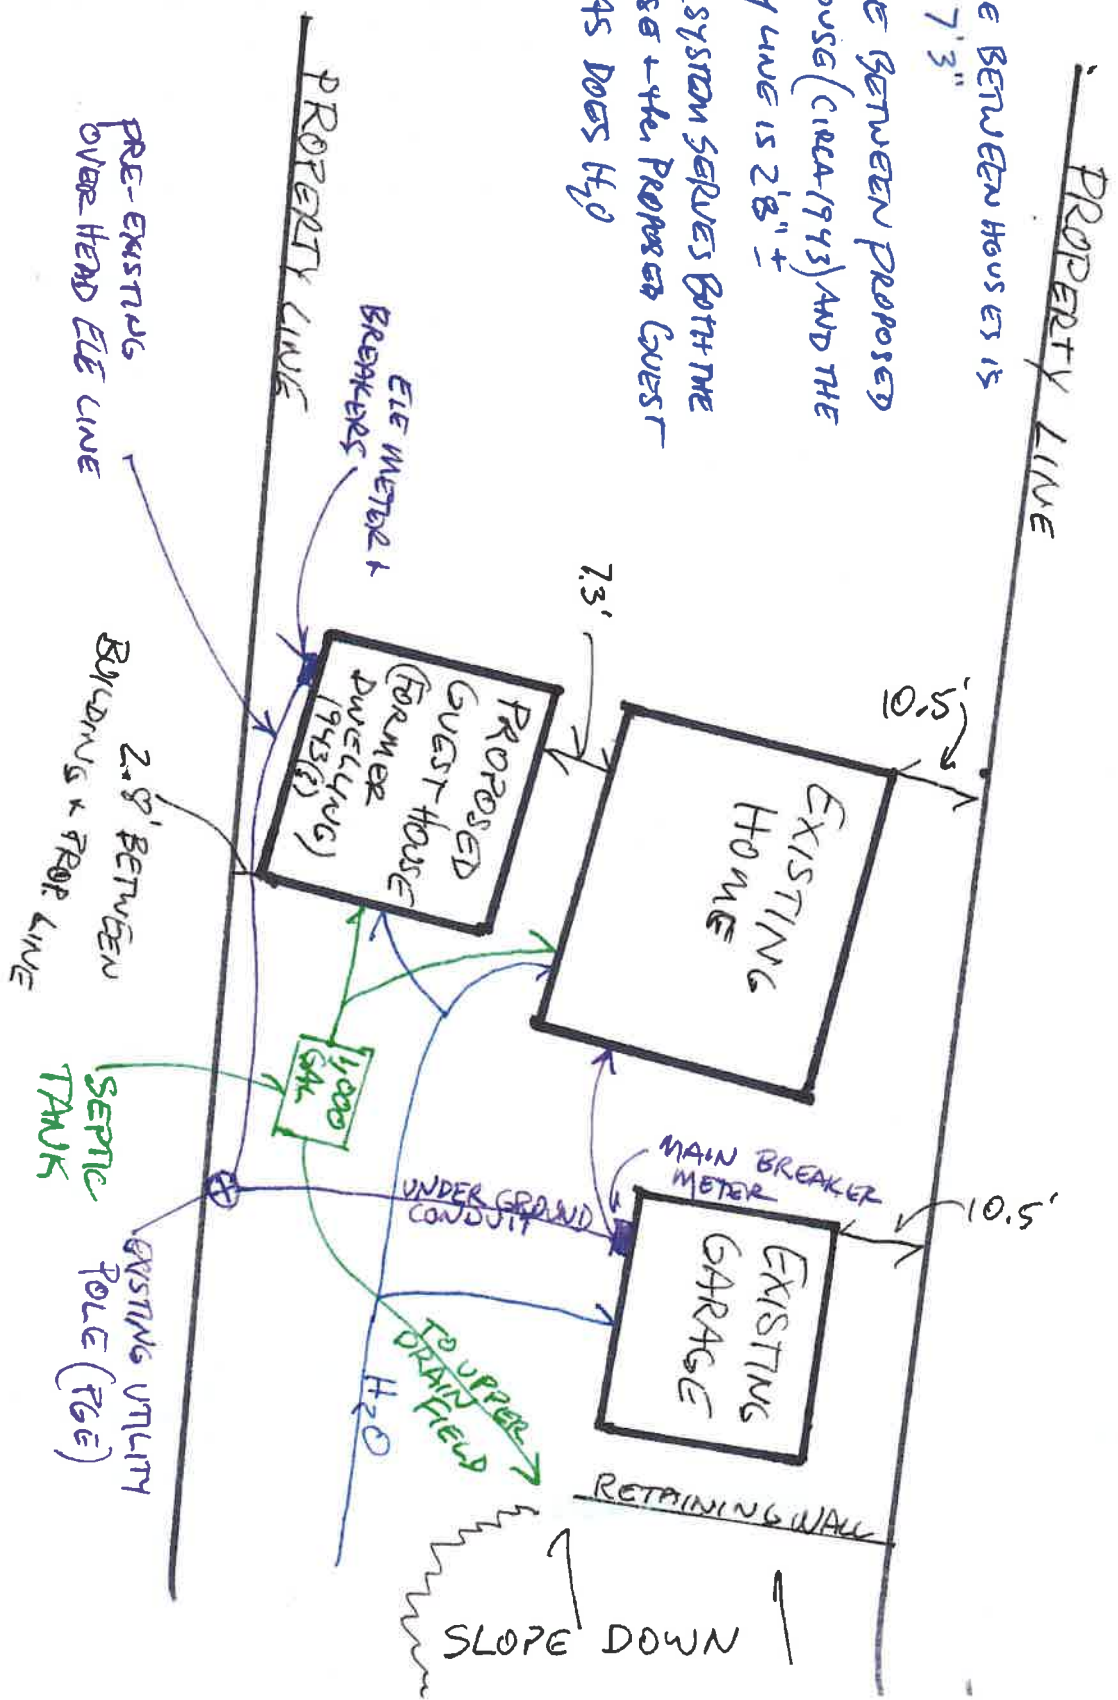 E BETWEEN HOUSES IS
7'3"
E BETWEEN PROPOSED
OUSE (CIRCA-1943) AND THE
Y LINE IS 2'8" ±
SYSTEM SERVES BOTH THE
SE + the PROPOSED GUEST
AS DOES H2O
PROPERTY LINE
PROPERTY LINE
PRE-EXISTING
OVER HEAD ELE LINE
ELE METER &
BREAKERS
7.3'
10.5'
EXISTING
HOME
PROPOSED
GUEST HOUSE
(FORMER
DWELLING)
1943(?)
2.8' BETWEEN
BUILDING & PROP LINE
1,000
GAL
SEPTIC
TANK
MAIN BREAKER
METER
UNDERGROUND
CONDUIT
EXISTING
GARAGE
10.5'
EXISTING UTILITY
POLE (PGE)
H2O
TO UPPER
DRAIN
FIELD
RETAINING WALL
SLOPE DOWN